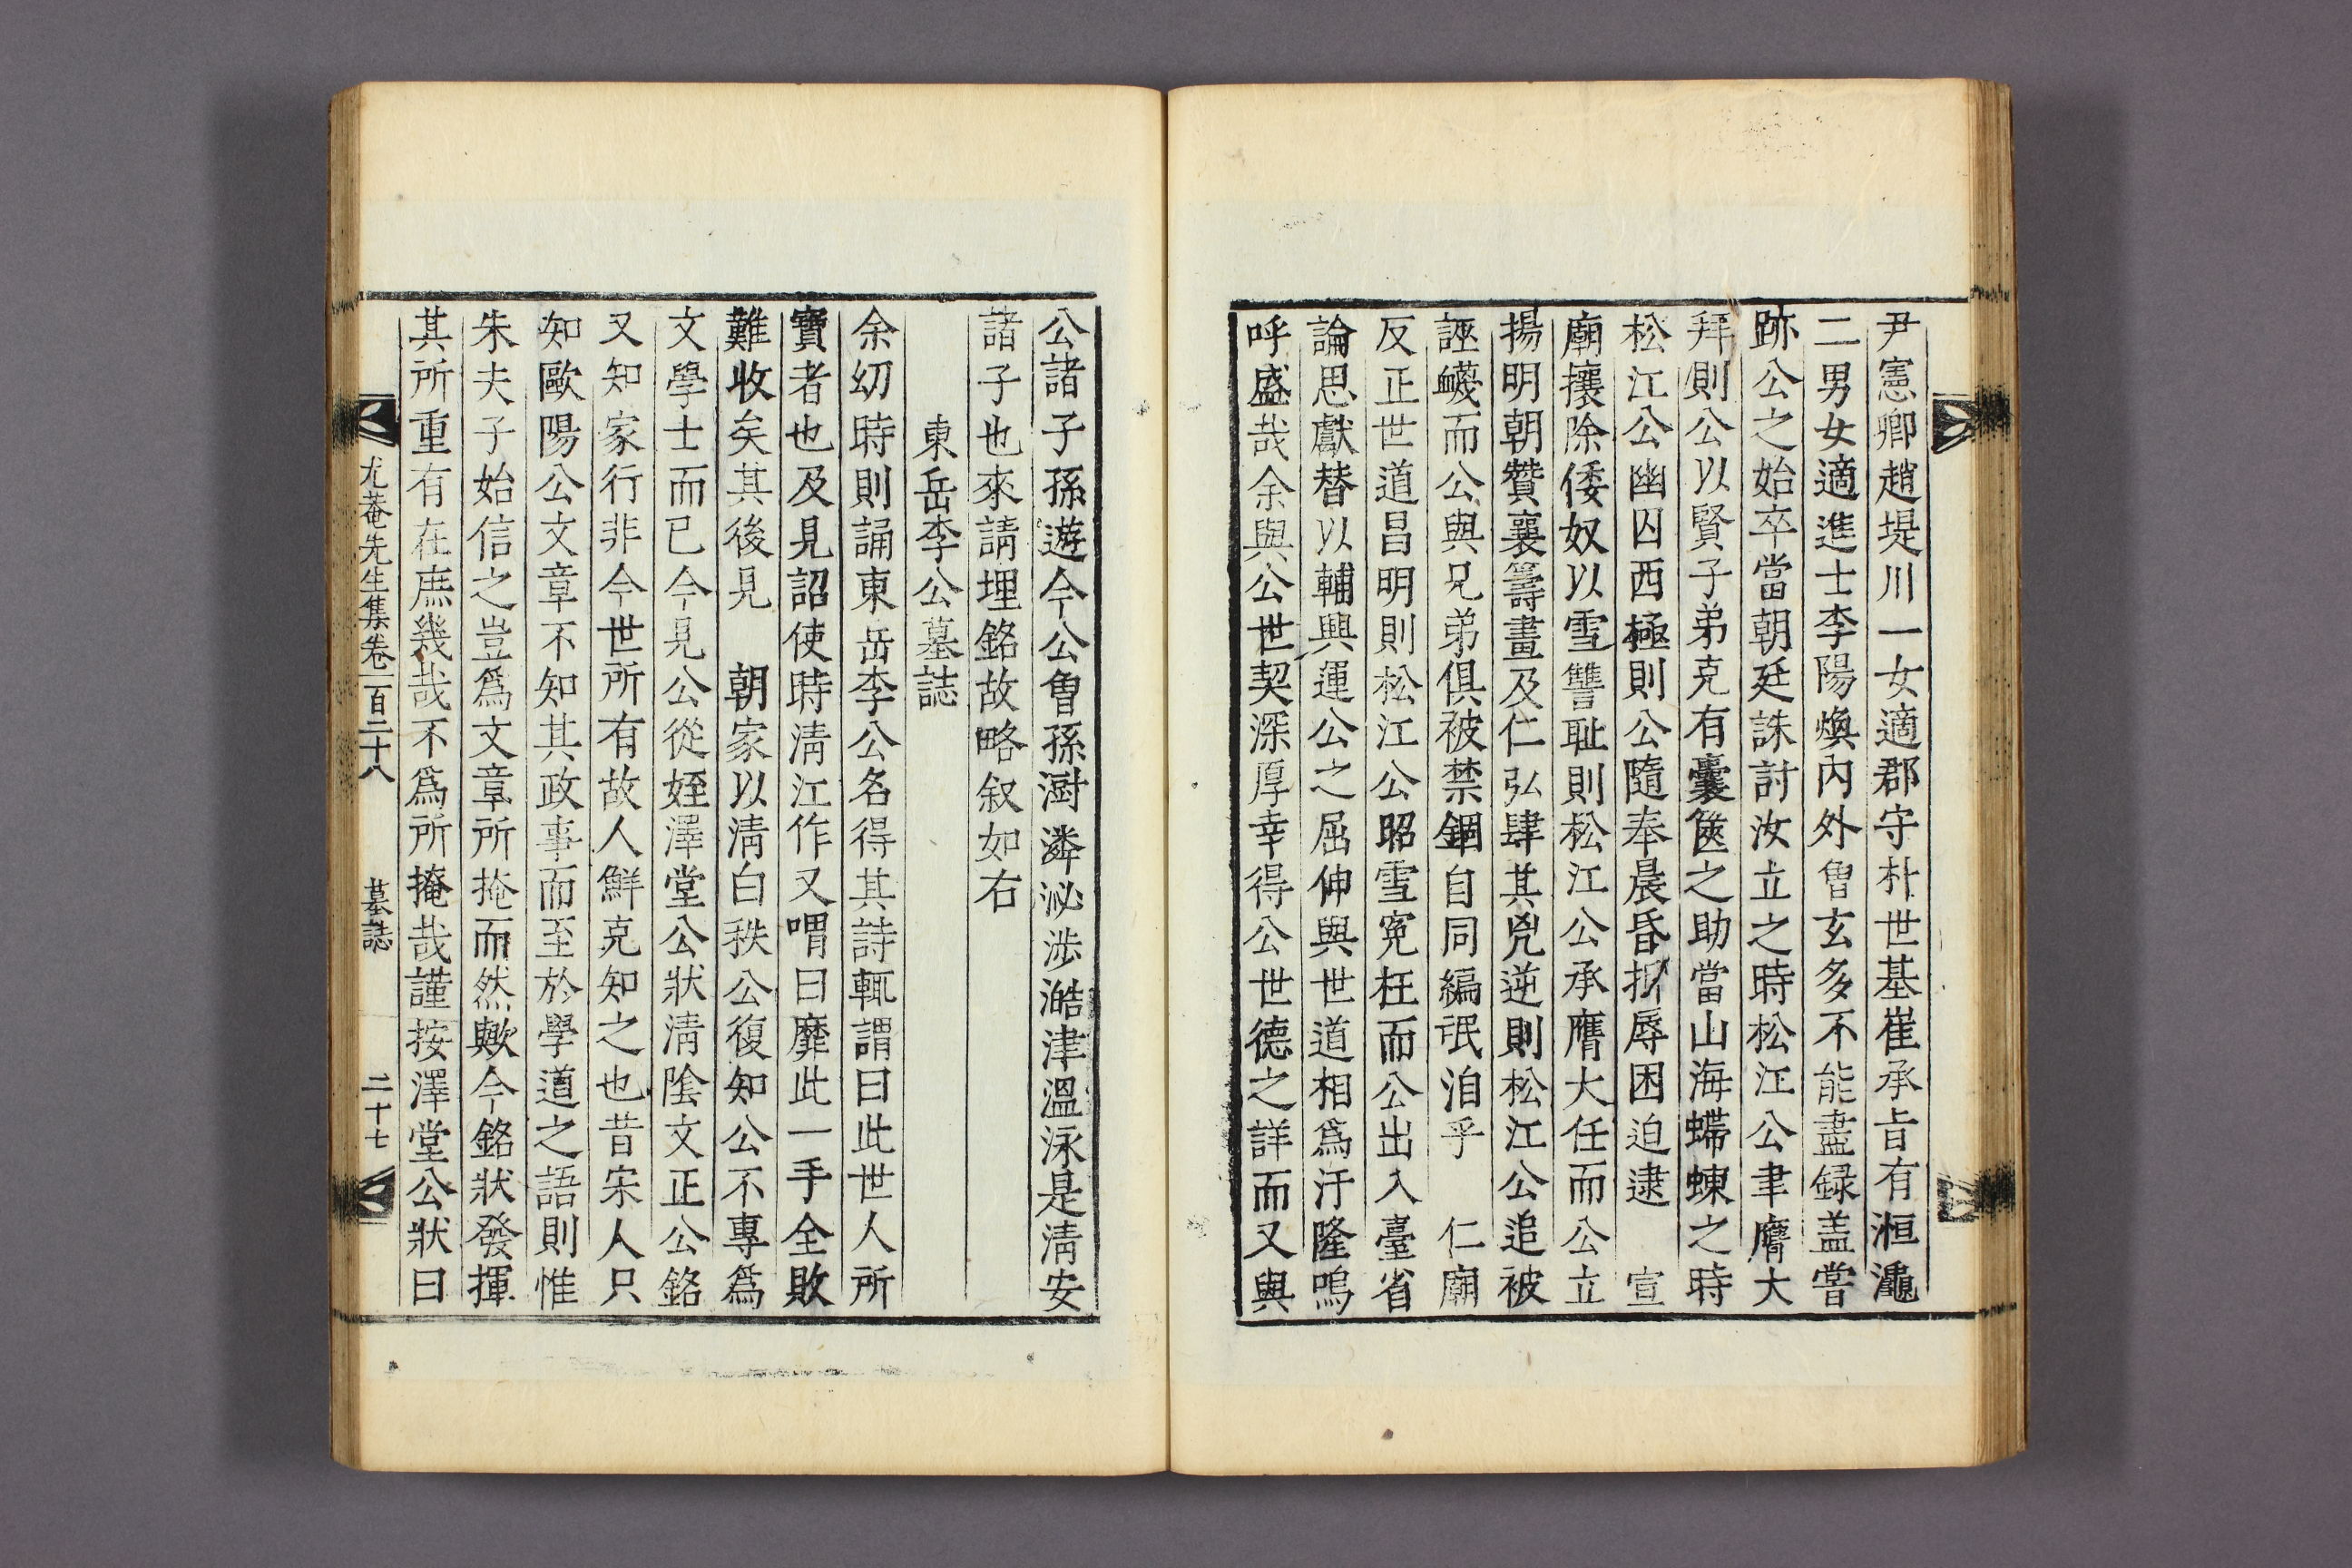 尹憲卿趙堤川一女適郡守朴世基崔承㫖有洹㶆
二男女適進士李陽煥內外曾玄多不能盡録盖嘗
跡公之始卒當朝廷誅討汝立之時松江公聿膺大
拜則公以賢子弟克有囊篋之助當山海蝃蝀之時
松江公幽囚西極則公隨奉晨昏折辱困迫逮　宣
廟攘除倭奴以雪讐耻則松江公承膺大任而公立
揚明朝贊襄籌畫及仁弘肆其兇逆則松江公追被
誣衊而公與兄弟俱被禁錮自同編氓洎乎　仁廟
反正世道昌明則松江公昭雪寃枉而公出入臺省
論思獻替以輔興運公之屈伸與世道相爲汙隆嗚
呼盛哉余與公世契深厚幸得公世德之詳而又與
公諸子孫遊今公曾孫澍潾泌涉澔津溫泳是淸安
諸子也來請埋銘故略叙如右
東岳李公墓誌
余幼時則誦東岳李公名得其詩輒謂曰此世人所
寶者也及見詔使時淸江作又喟曰靡此一手全敗
難收矣其後見　朝家以淸白秩公復知公不專爲
文學士而已今見公從姪澤堂公狀淸陰文正公銘
又知家行非今世所有故人鮮克知之也昔宋人只
知歐陽公文章不知其政事而至於學道之語則惟
朱夫子始信之豈爲文章所掩而然歟今銘狀發揮
其所重有在庶幾哉不爲所掩哉謹按澤堂公狀曰
尤菴先生集卷一百二十八　墓誌　二十七